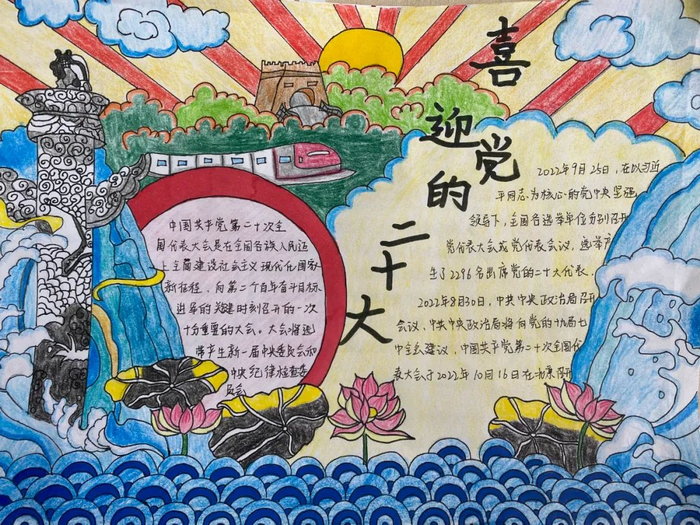 喜迎党的二十大
中国共产党第二十次全
国代表大会是在全国各族人民迈
上全面建设社会主义现代化国家
新征程,向第二个百年奋斗目标
进军的关键时刻召开的一次
十分重要的大会。大会将选
举产生新一届中央委员会和
中央纪律检查委
员会
2022年9月25日,在以习近
平同志为核心的党中央坚强
领导下,全国各选举单位分别召开
党代表大会或党代表会议,选举产
生了2296名出席党的二十大代表.
2022年8月30日,中共中央政治局召开
会议,中共中央政治局将向党的十九届七
中全会建议,中国共产党第二十次全国代
表大会于2022年10月16日在北京召开